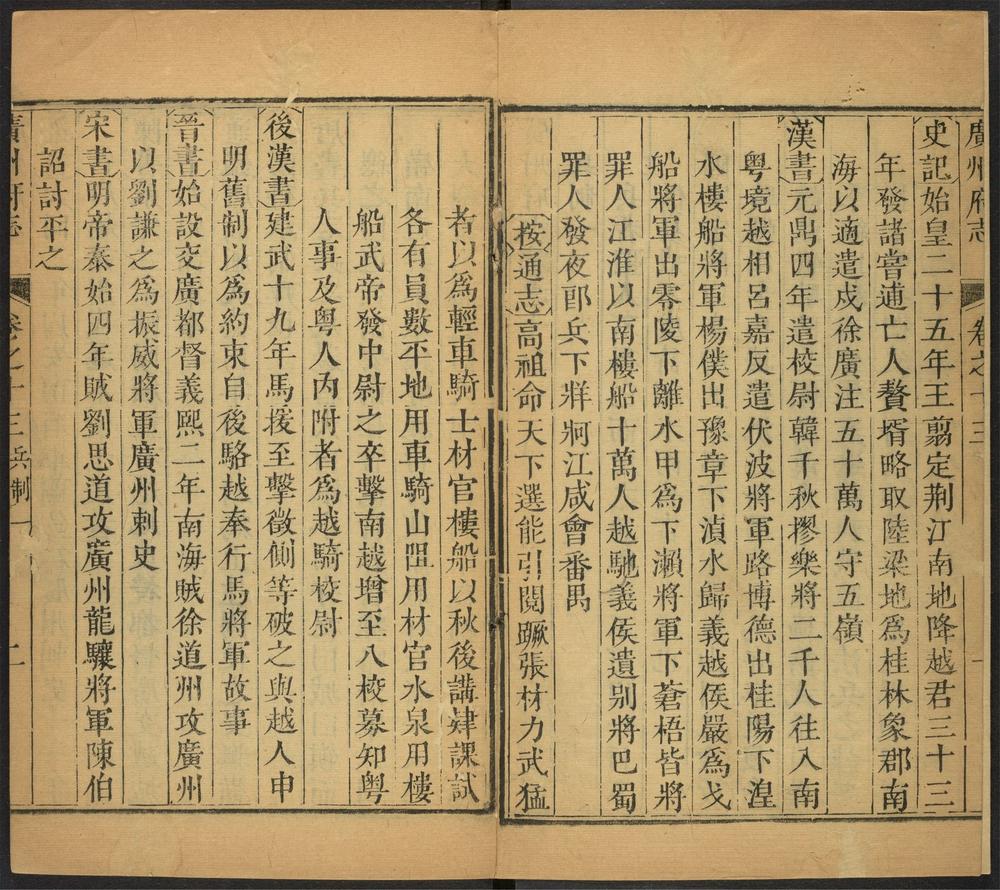 廣州府志 卷之十三
史記始皇二十五年王翦定荆江南地降越君三十三
年發諸嘗逋亡人贅壻略取陸梁地爲桂林象郡南
海以適遣戍徐廣注五十萬人守五嶺
漢書元鼎四年遣校尉韓千秋摎樂將二千人往入南
粤境越相呂嘉反遣伏波將軍路博德出桂陽下湟
水樓船將軍楊僕出豫章下湞水歸義越侯嚴爲戈
船將軍出零陵下離水甲爲下瀨將軍下蒼梧皆將
罪人江淮以南樓船十萬人越馳義侯遺别將巴蜀
罪人發夜郎兵下牂牁江咸會番禺
按通志高祖命天下選能引關蹶張材力武猛
者以爲輕車騎士材官樓船以秋後講肄課試
各有員數平地用車騎山阻用材官水泉用樓
船武帝發中尉之卒擊南越增至八校募知粤
人事及粤人内附者爲越騎校尉
後漢書建武十九年馬援至擊徵側等破之與越人申
明舊制以爲約束自後駱越奉行馬將軍故事
晉書始設交廣都督義熙二年南海賊徐道州攻廣州
以劉謙之爲振威將軍廣州刺史
宋書明帝泰始四年賊劉思道攻廣州龍驤將軍陳伯
詔討平之
廣州府志 卷之十三兵制一 二